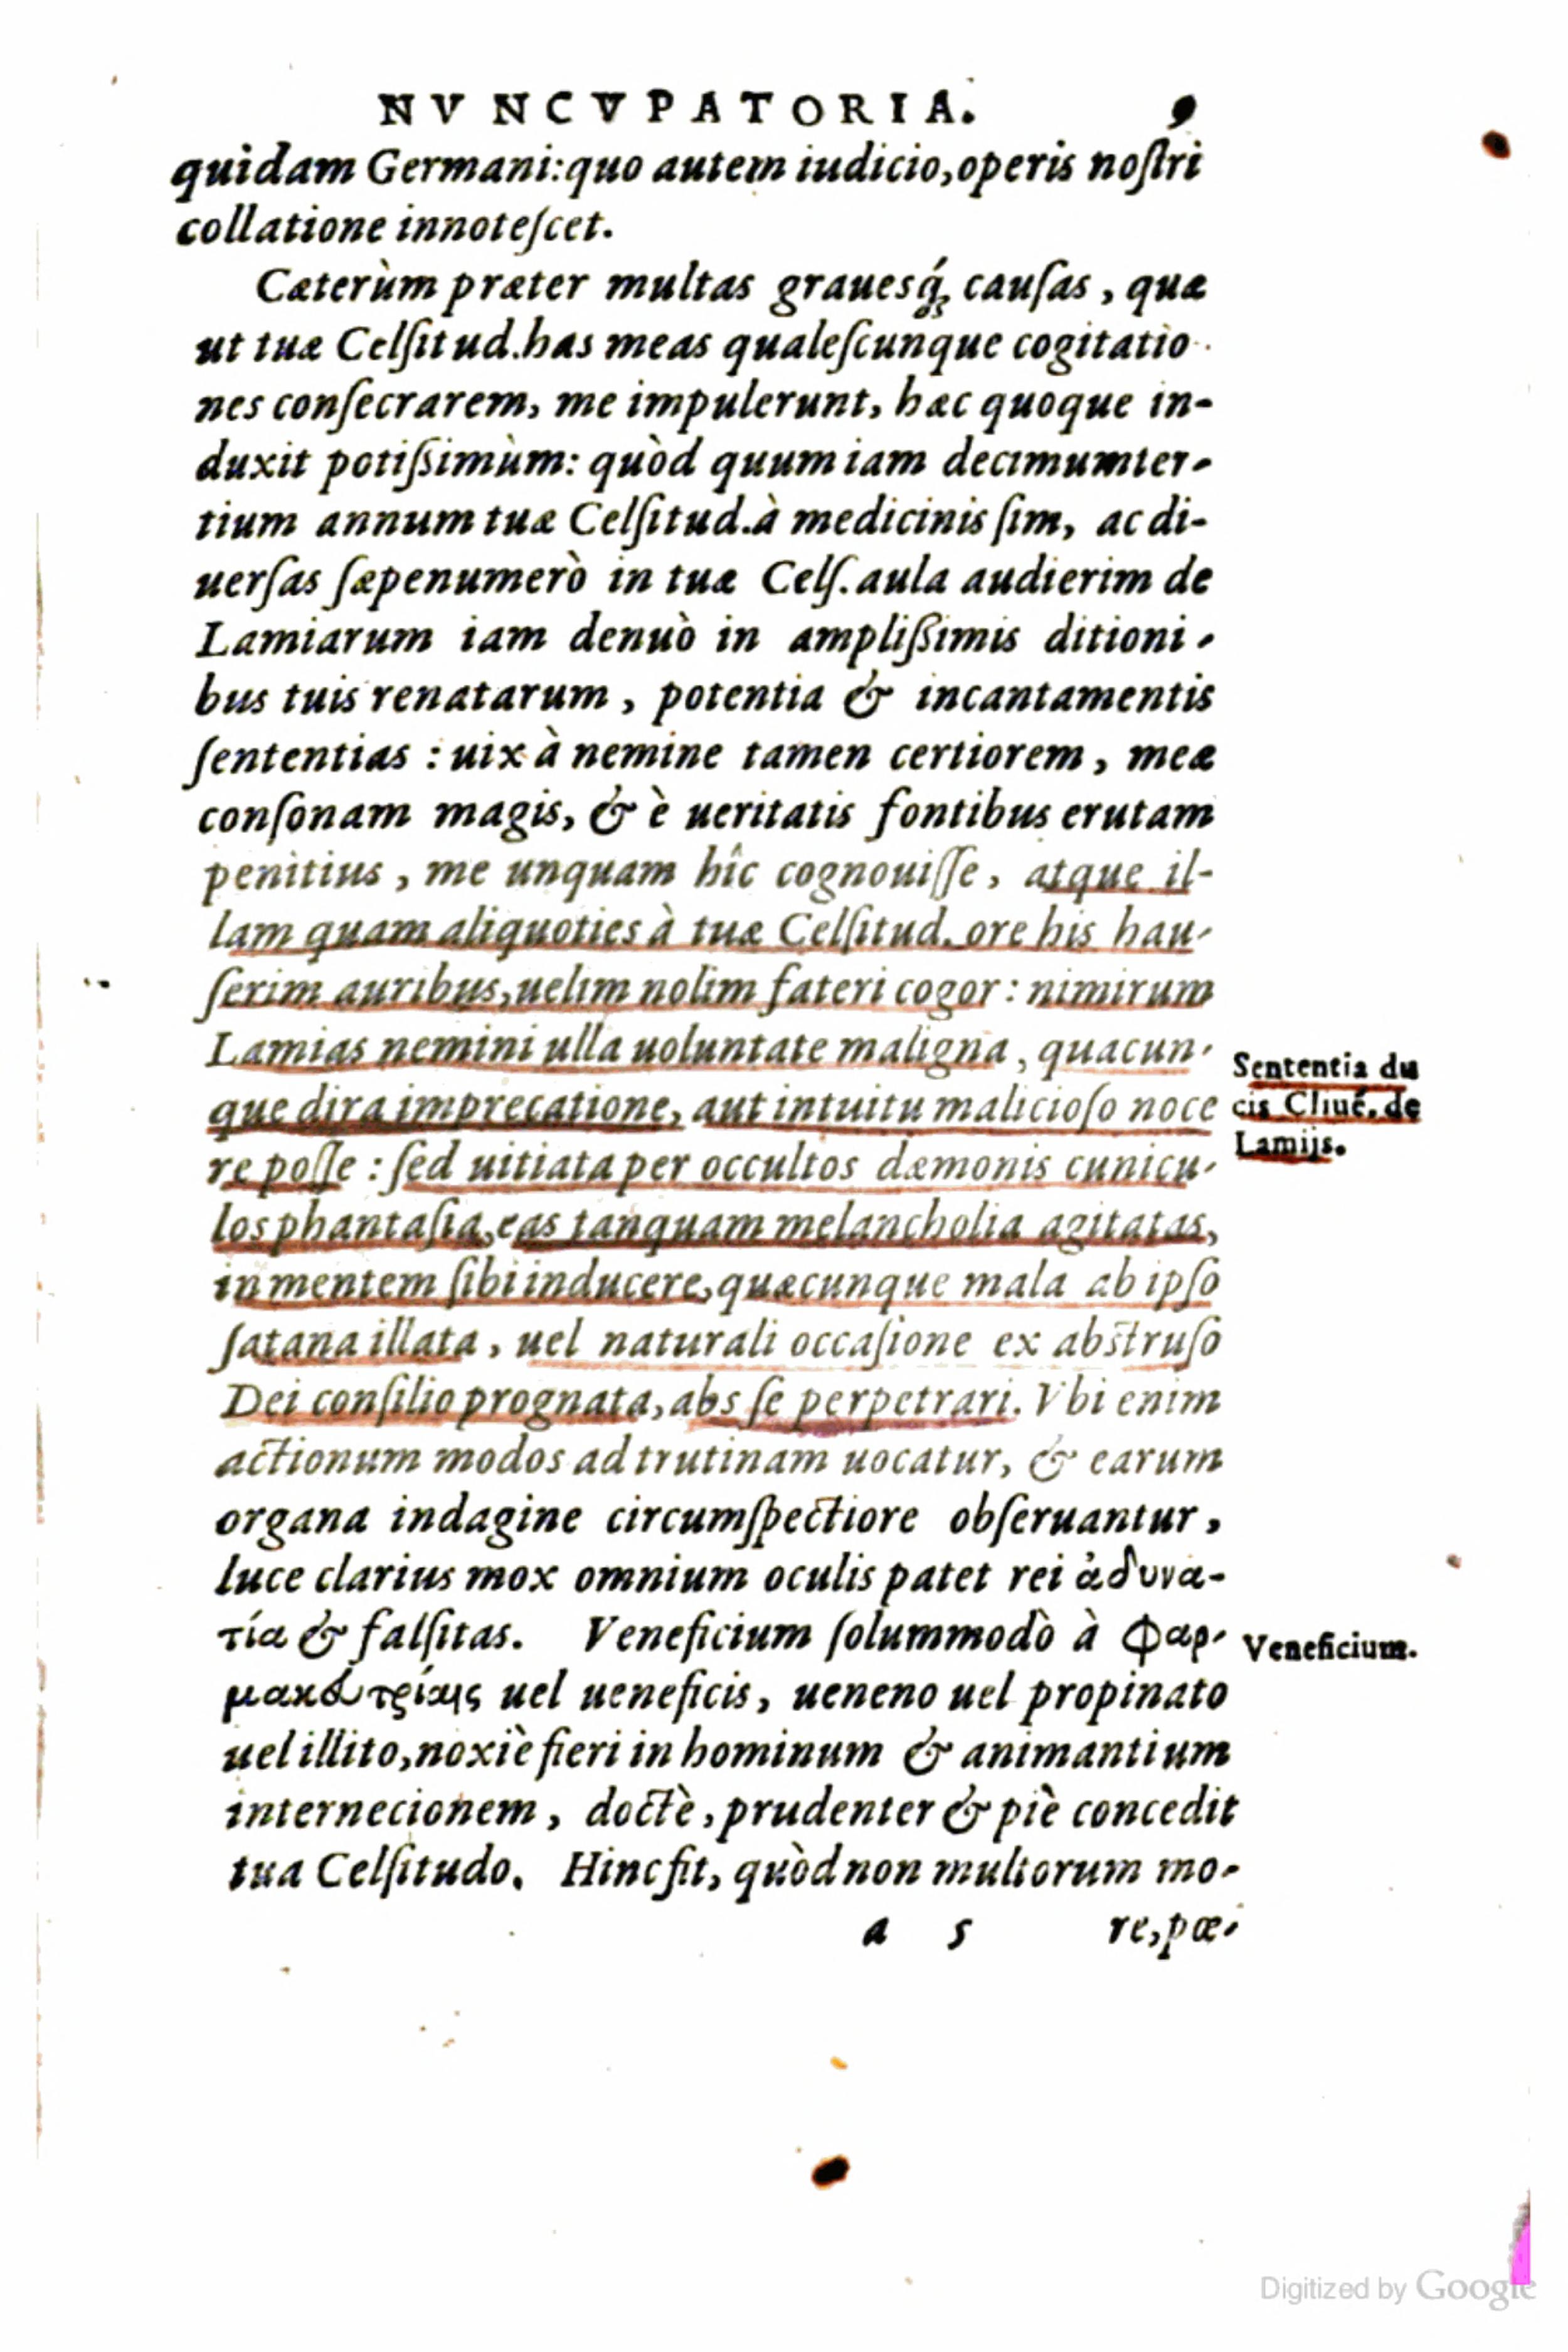 NVNCVPATORIA. 9
quidam Germani: quo autem iudicio, operis noſtri
collatione innoteſcet.
Cæterùm præter multas grauesq́; cauſas, quæ
ut tuæ Celſitud. has meas qualeſcunque cogitatio-
nes conſecrarem, me impulerunt, hæc quoque in-
duxit potiſsimùm: quòd quum iam decimumter-
tium annum tuæ Celſitud. à medicinis ſim, ac di-
uerſas ſæpenumerò in tuæ Celſ. aula audierim de
Lamiarum iam denuò in ampliſsimis ditioni-
bus tuis renatarum, potentia & incantamentis
ſententias: uix à nemine tamen certiorem, meæ
conſonam magis, & è ueritatis fontibus erutam
penitius, me unquam hîc cognouiſſe, atque il-
lam quam aliquoties à tuæ Celſitud. ore his hau-
ſerim auribus, uelim nolim fateri cogor: nimirum
Lamias nemini ulla uoluntate maligna, quacun-
que dira imprecatione, aut intuitu malicioſo noce
re poſſe: ſed uitiata per occultos dæmonis cunicu-
los phantaſia, eas tanquam melancholia agitatas,
in mentem ſibi inducere, quæcunque mala ab ipſo
ſatana illata, uel naturali occaſione ex abſtruſo
Dei conſilio prognata, abs ſe perpetrari. Vbi enim
actionum modos ad trutinam uocatur, & earum
organa indagine circumſpectiore obſeruantur,
luce clarius mox omnium oculis patet rei ἀδυνα-
τία & falſitas. Veneficium ſolummodò à Φαρ-
μακευτρίαις uel ueneficis, ueneno uel propinato
uel illito, noxiè fieri in hominum & animantium
internecionem, doctè, prudenter & piè concedit
tua Celſitudo. Hinc fit, quòd non multorum mo-
a 5 re, pœ-
Sententia du
cis Cliuẽ. de
Lamijs.
Veneficium.
Digitized by Google